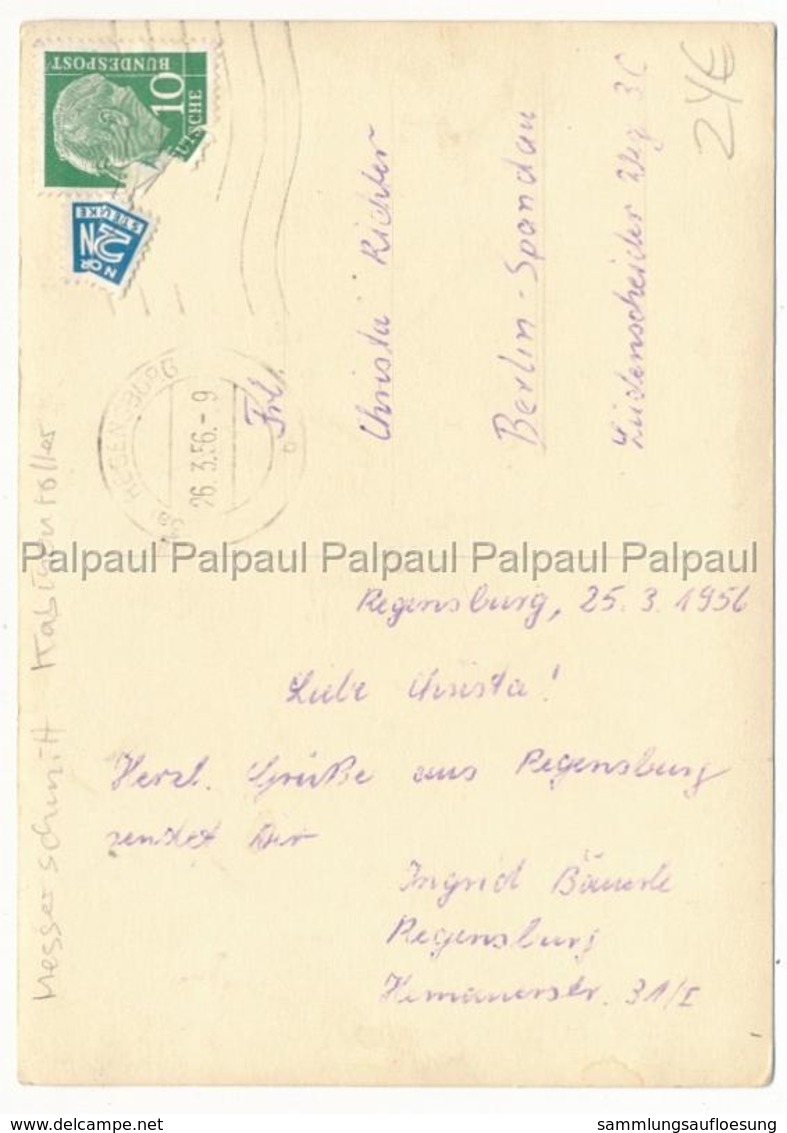 10
BUNDESPOST
NOT
2
STEUER
REGENSBURG
26.3.56.-9
Frl.
Christa Richter
Berlin-Spandau
Lüdenscheider Weg 3C
24€
Messerschmitt Kabinenroller
Palpaul Palpaul Palpaul Palpaul Palpaul
Regensburg, 25.3.1956
Liebe Christa!
Herzl. Grüße aus Regensburg
sendet Dir
Ingrid Bäuerle
Regensburg
Hemauerstr. 31/I
www.delcampe.net
sammlungsaufloesung